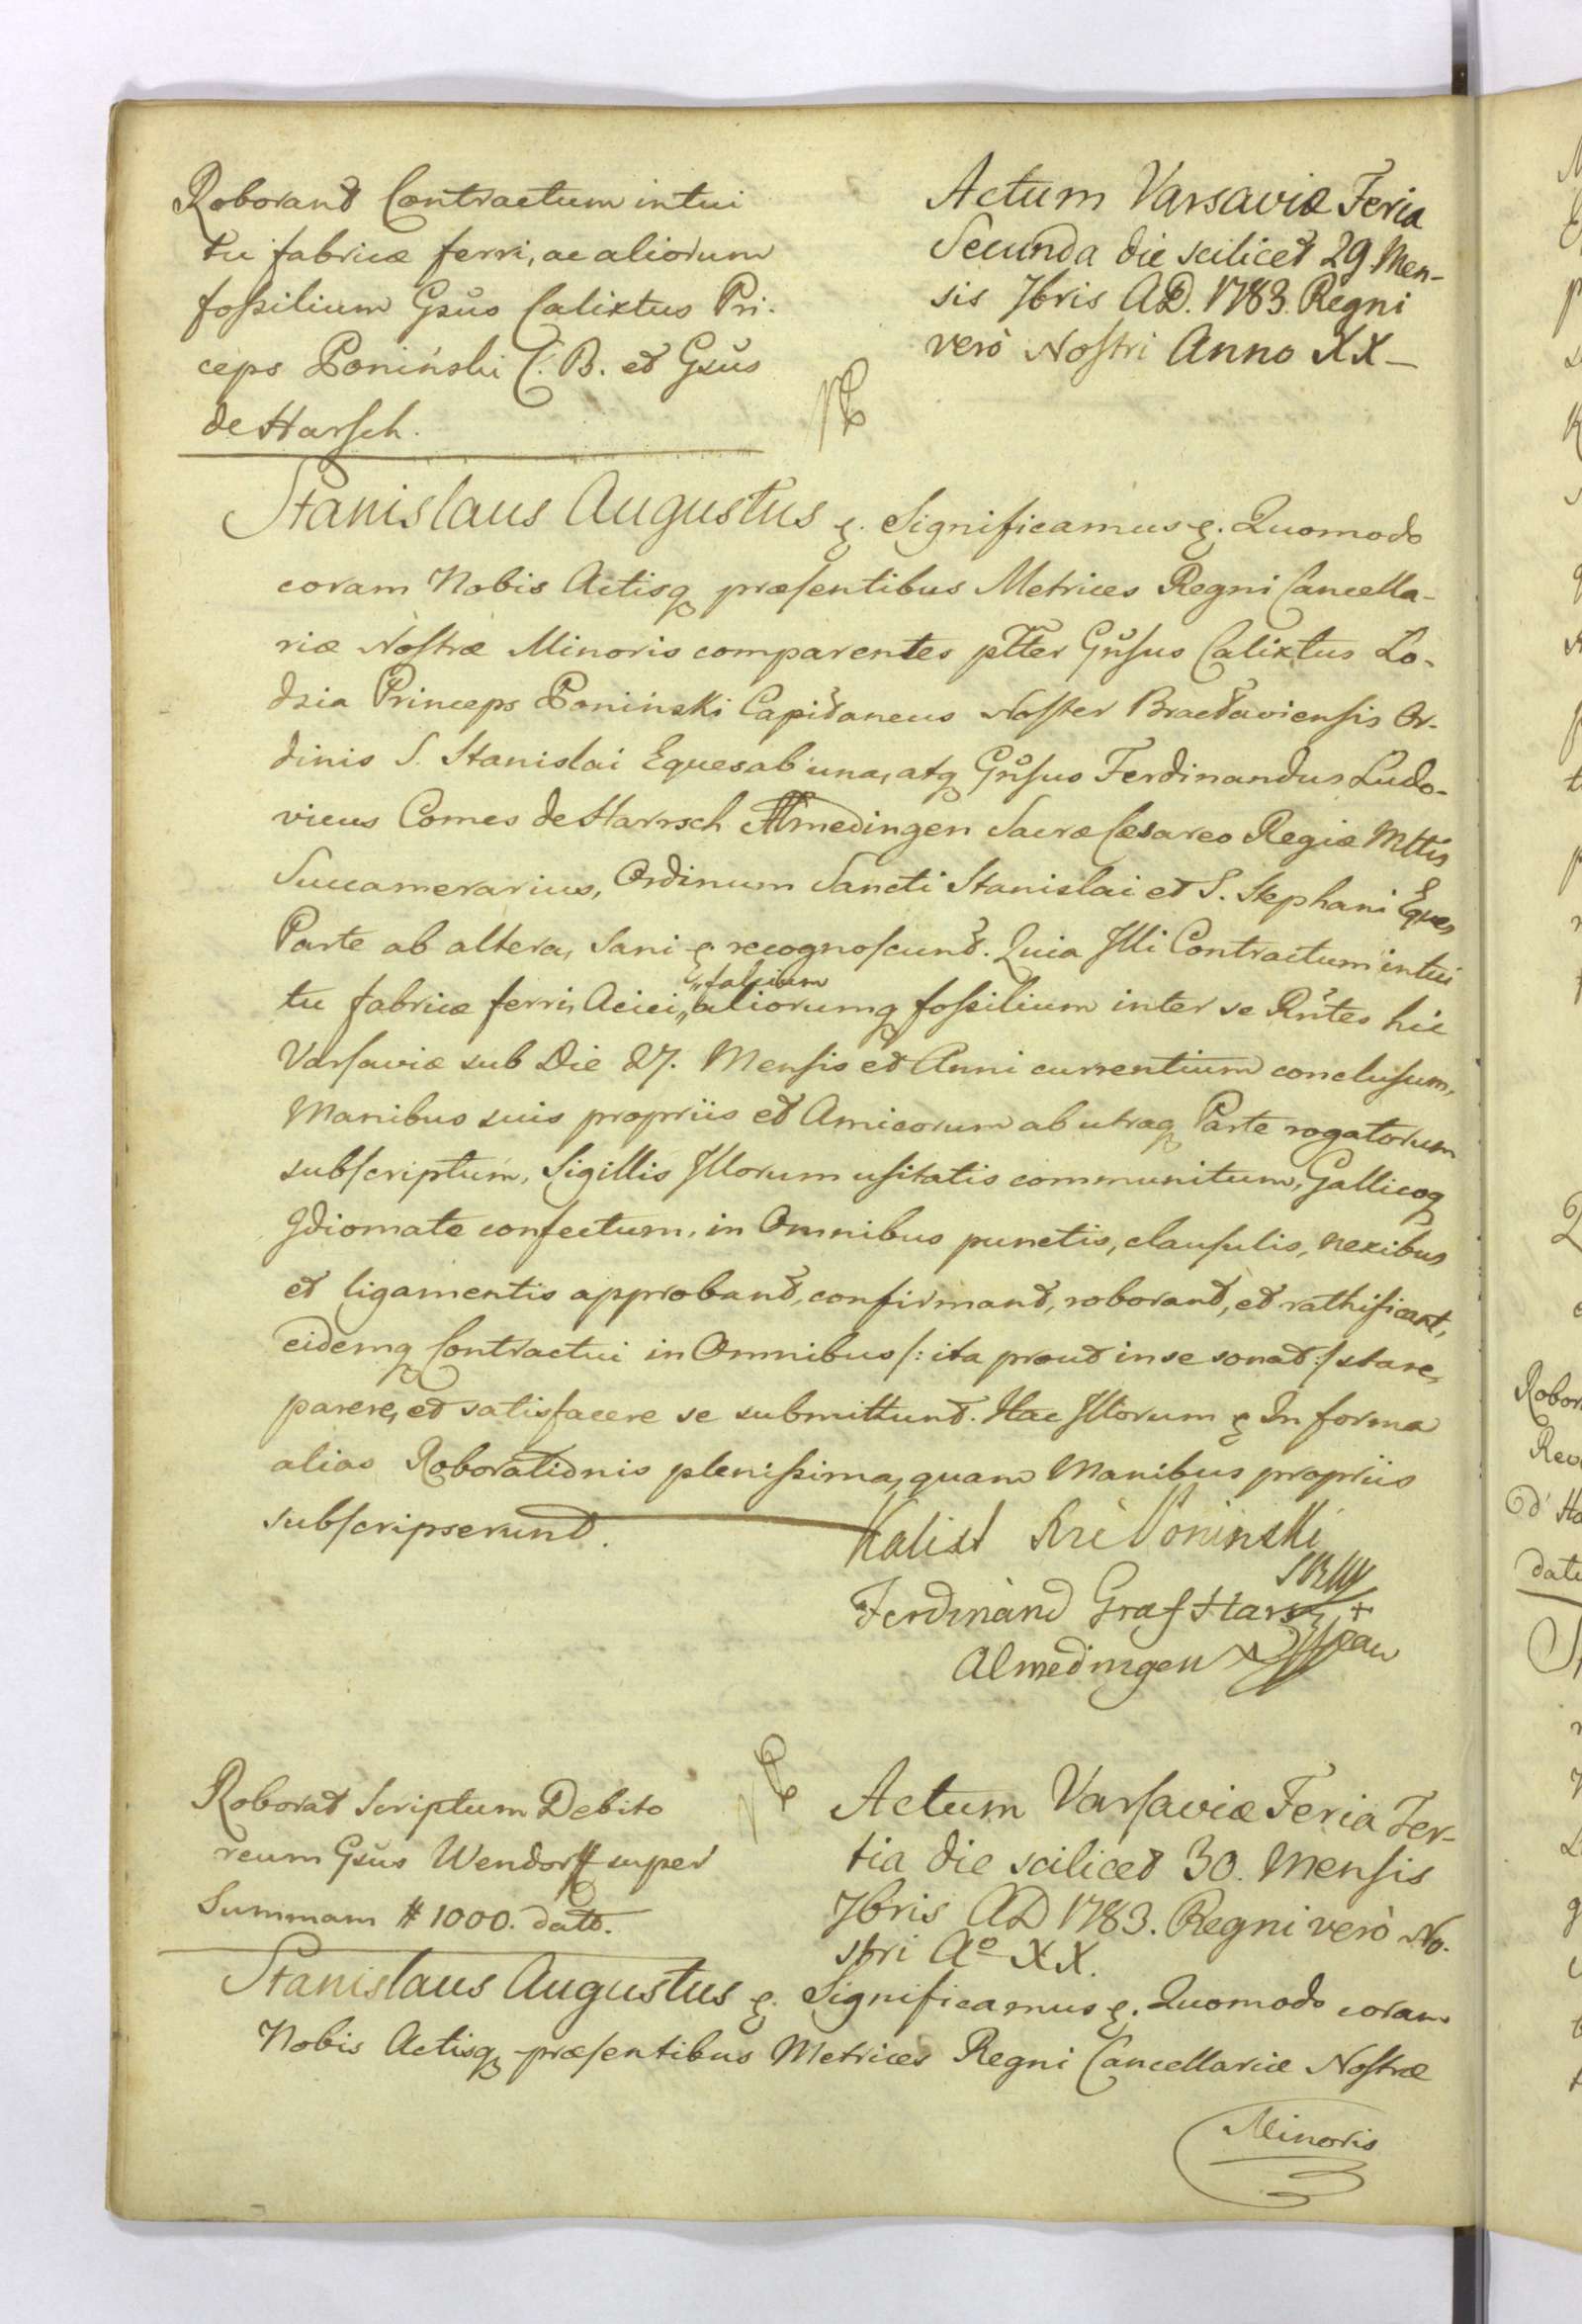 Roborant Contractum intui
tu fabricæ ferri, ac aliorum
foßilium Gsus Calixtus Pri.
ceps Poniński C. B. et Gsus
de Harſch.
Actum Varsaviæ Feria
Secunda die scilicet 29 Men-
sis 7bris AD. 1783. Regni
verò Noſtri Anno XX
Stanislaus Augustus &. Significamus &. Quomodo
coram Nobis Actisq præſentibus Metrices Regni Cancella-
riæ Noſtræ Minoris comparentes ptter Gnſus Calixtus Lo-
dzia Princeps Poninski Capitaneus Noſter Bractavienſis Or-
dinis S. Stanislai Eques ab una, atq Gnſus Ferdinandus Ludo-
vicus Comes de Harrsch Almedingen Sacræ Cæsareo Regiæ Mttis
Succamerarius, Ordinum Sancti Stanislai et S. Stephani Eques
Parte ab altera, Sani & recognoſcunt. Quia Illi Contractum intui
tu fabricæ ferri, Aciei,, aliorumq foßilium inter se Rntes hic
,,falcium
Varſaviæ sub Die 27. Menſis et Anni currentium concluſum,
Manibus suis propriis et Amicorum ab utraq Parte rogatorum
subſcriptum, Sigillis Illorum uſitatis communitum, Gallicoq
Idiomate confectum, in Omnibus punctis, clauſulis, nexibus
et ligamentis approbant, confirmant, roborant, et rathificant,
eidemq Contractui in Omnibus /: ita prout in se sonat :/ stare,
parere, et satisfacere se submittunt. Hac Illorum & In forma
alias Roborationis plenißima, quam Manibus propriis
subſcripserunt.
Kalixt Poninski
Ferdinand Graf Harsch
Almedingen
Roborat Scriptum Debito
reum Gsus Wendorff super
Summam # 1000. dat.
Actum Varſaviæ Feria Ter-
tia die scilicet 30. Menſis
7bris AD 1783. Regni verò No.
stri Aº XX.
Stanislaus Augustus &. Significamus &. Quomodo coram
Nobis Actisq præſentibus Metrices Regni Cancellariæ Noſtræ
Minoris